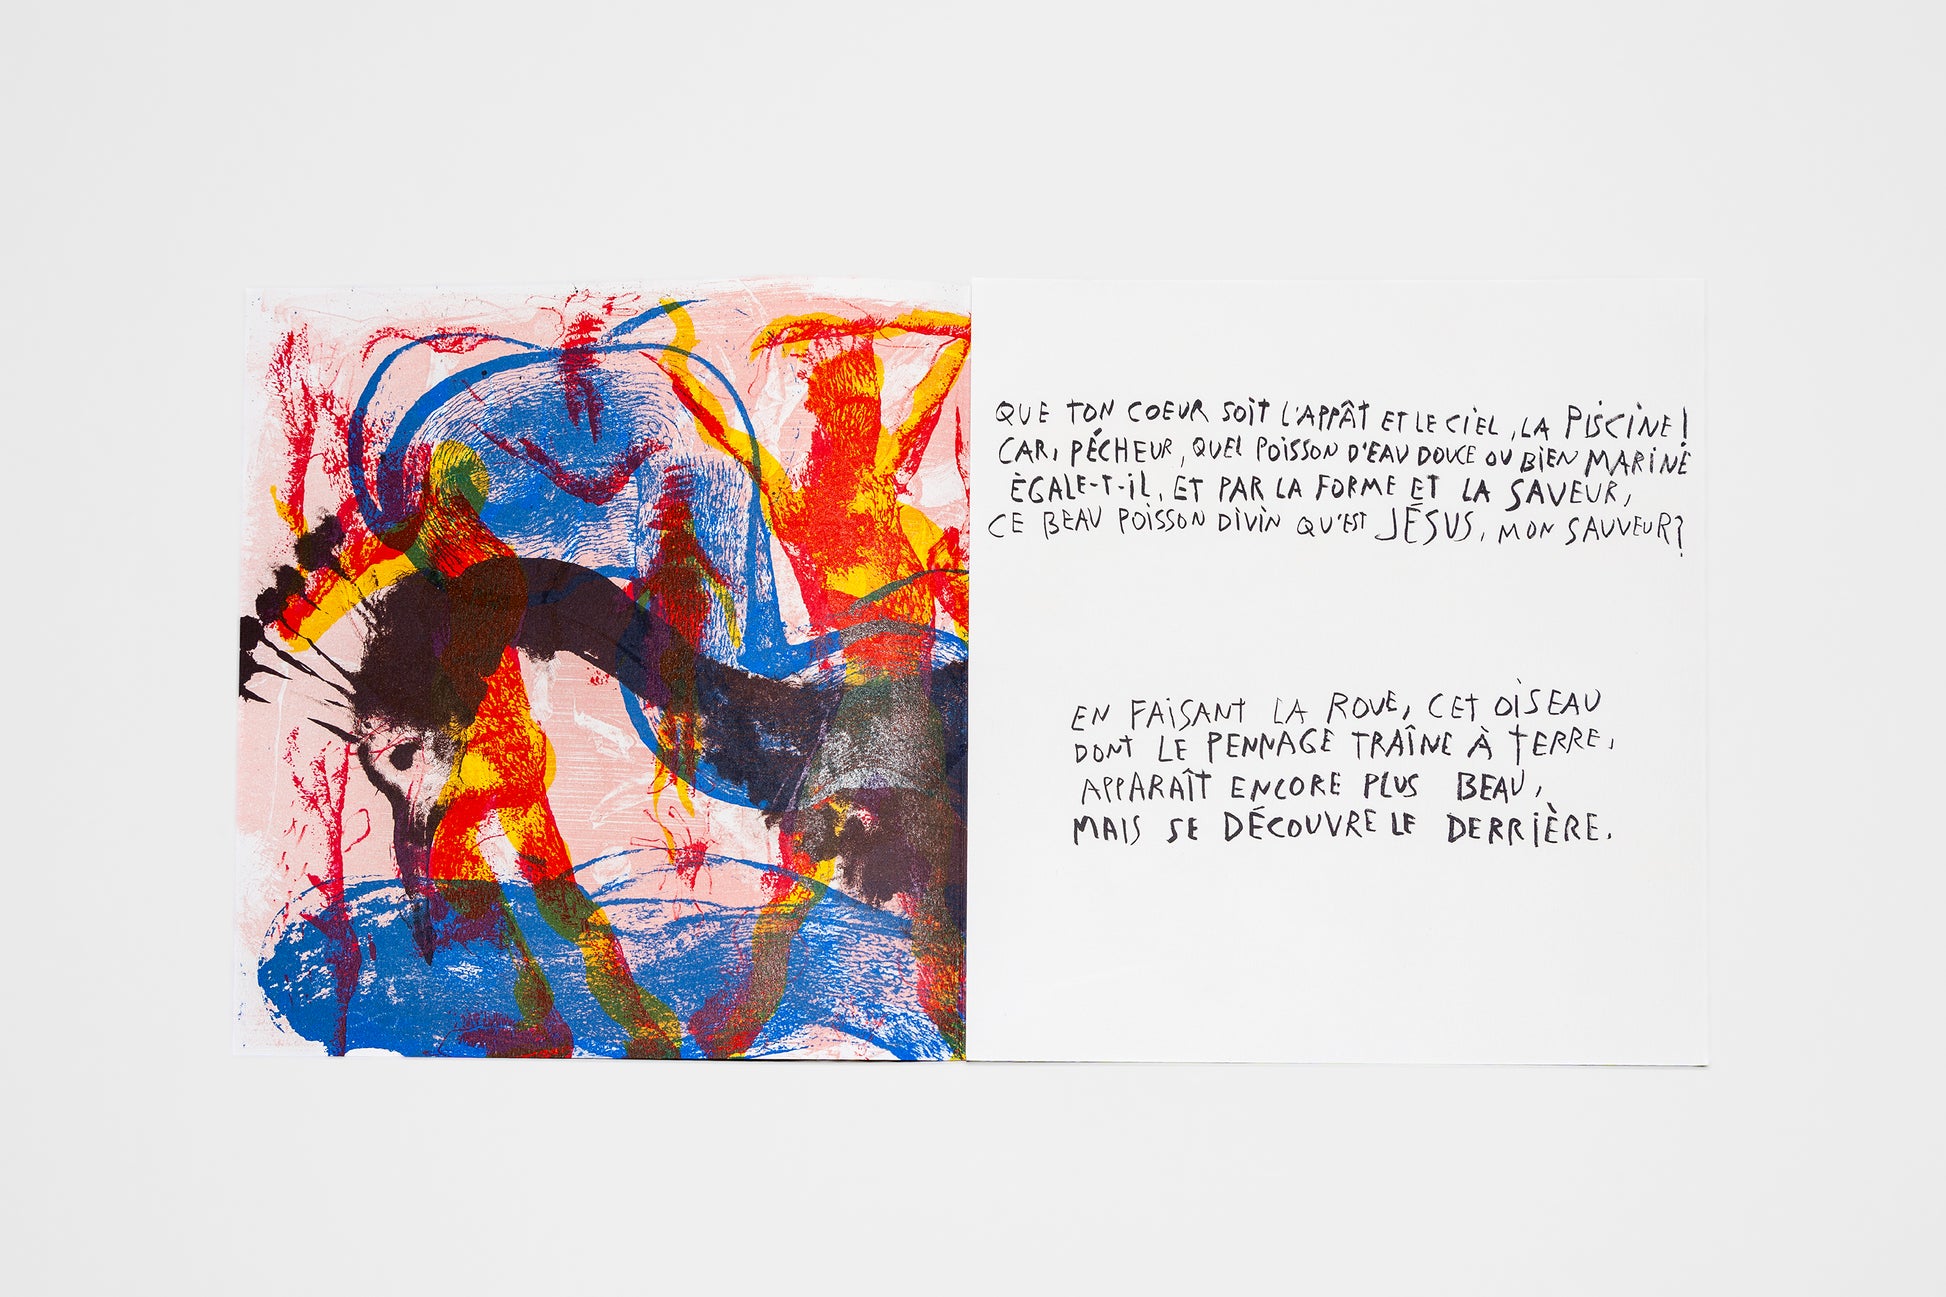 QUE TON COEUR SOIT L'APPÂT ET LE CIEL, LA PISCINE!
CAR, PÉCHEUR, QUEL POISSON D'EAU DOUCE OU BIEN MARINE
ÉGALE-T-IL, ET PAR LA FORME ET LA SAVEUR,
CE BEAU POISSON DIVIN QU'EST JÉSUS, MON SAUVEUR?
EN FAISANT LA ROUE, CET OISEAU
DONT LE PENNAGE TRAÎNE À TERRE,
APPARAÎT ENCORE PLUS BEAU,
MAIS SE DÉCOUVRE LE DERRIÈRE.